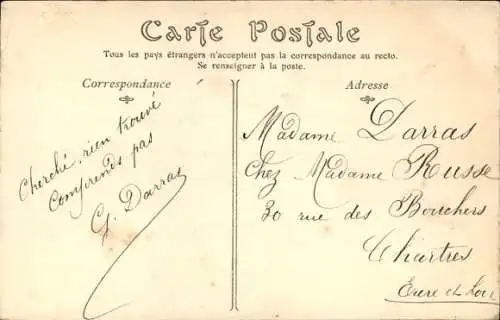 Carte Postale
Tous les pays étrangers n'acceptent pas la correspondance au recto.
Se renseigner à la poste.
Correspondance
Adresse
Cherché, rien trouvé
Comprends pas
G. Darras
Madame Darras
Chez Madame Russe
30 rue des Bouchers
Chartres
Eure et Loir